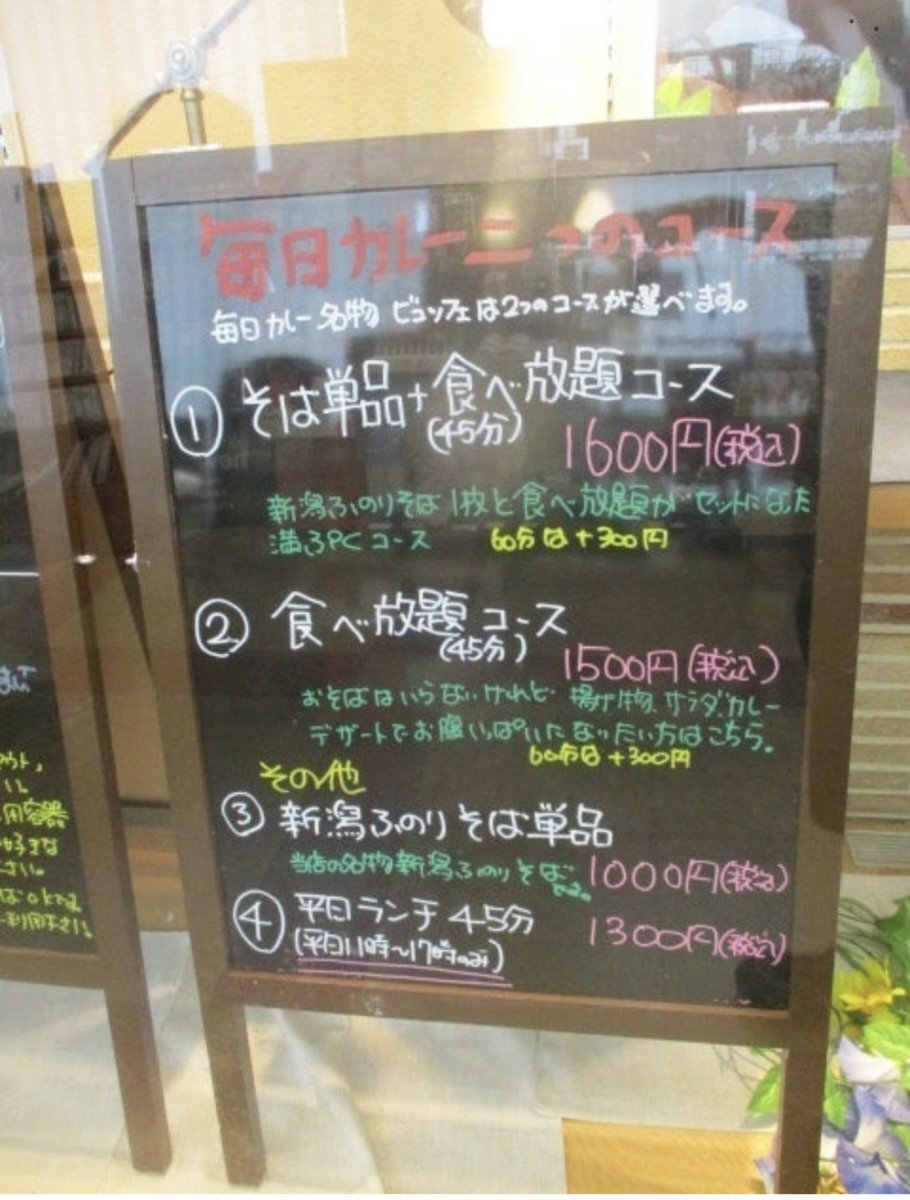 毎日カレー二つのコース
毎日カレー名物 ビュッフェは2つのコースが選べます。
① そば単品+食べ放題コース
(45分)
1600円(税込)
新潟ふのりそば1枚と食べ放題がセットになった
満ぷくコース 60分は+300円
② 食べ放題コース
(45分)
1500円(税込)
おそばはいらないけれど 揚げ物、サラダ、カレー
デザートでお腹いっぱいになりたい方はこちら。
60分は+300円
その他
③ 新潟ふのりそば単品
当店の名物新潟ふのりそばです。
1000円(税込)
④ 平日ランチ45分
(平日11時〜17時のみ)
1300円(税込)
用容器
好きな
さい。